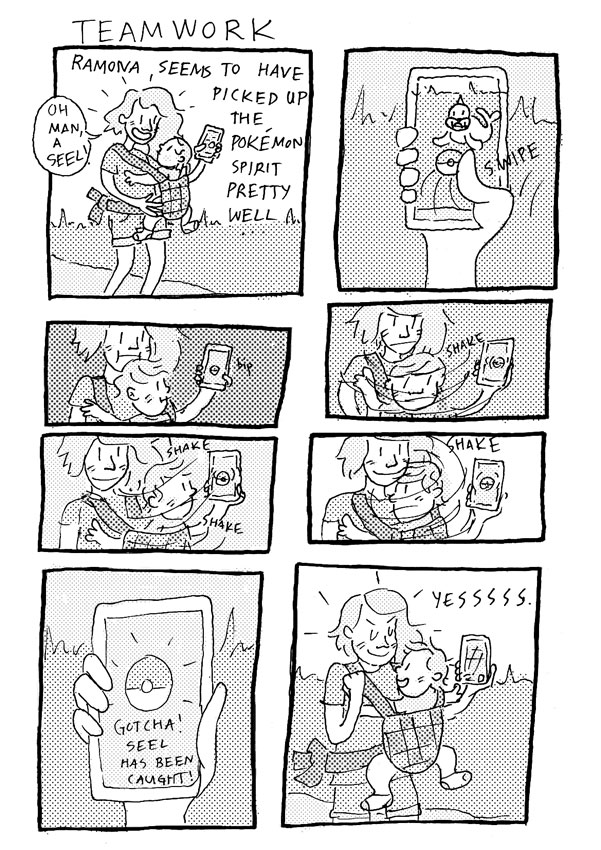 TEAMWORK
RAMONA, SEEMS TO HAVE
PICKED UP
THE
POKÉMON
SPIRIT
PRETTY
WELL.
OH
MAN,
A
SEEL!
SWIPE
SHAKE
SHAKE
SHAKE
SHAKE
GOTCHA!
SEEL
HAS BEEN
CAUGHT!
YESSSSS.